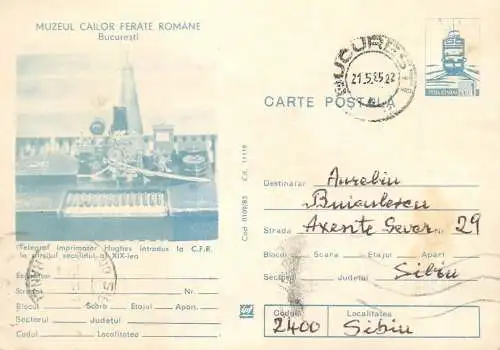 MUZEUL CĂILOR FERATE ROMÂNE
București
Telegraf imprimator Hughes introdus la C.F.R.
la sfîrșitul secolului al XIX-lea
Expeditor
Strada Nr.
Blocul Scara Etajul Apart.
Sectorul Județul
Codul Localitatea
Cod 0109/85 C.K. 11119
BUCUREȘTI
21.5.85 22
POSTA ROMANA
CARTE POȘTALĂ
Destinatar Aureliu
Buiculescu
Strada Axente Sever Nr. 29
Blocul Scara Etajul Apart
Sectorul Județul Sibiu
Codul Localitatea
2400 Sibiu